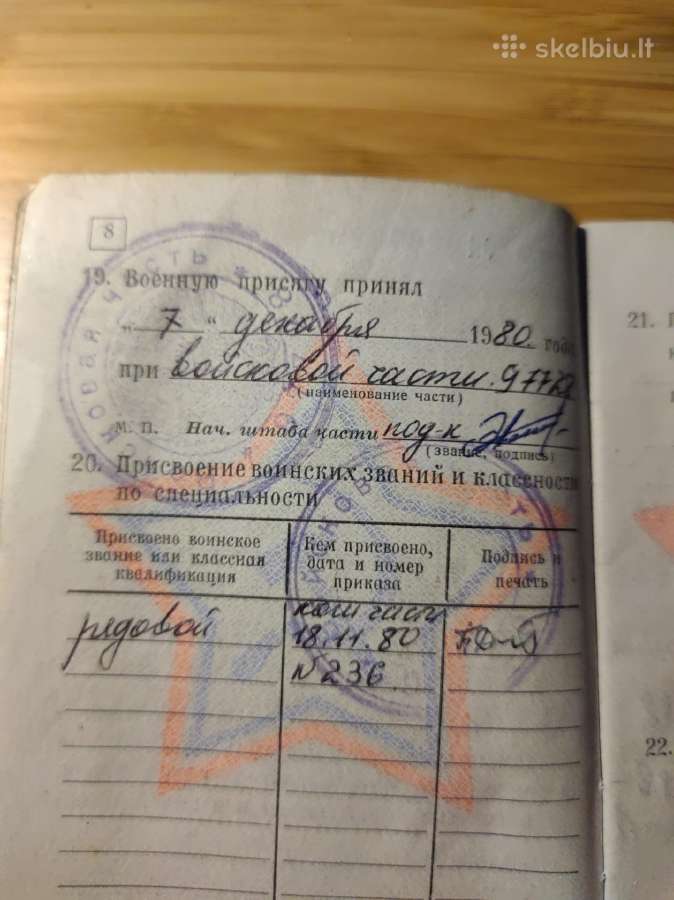 skelbiu.lt
8
19. Военную присягу принял
„ 7 “ декабря 1980 года
при войсковой части
(наименование части)
М. П. Нач. штаба части под-к
(звание, подпись)
20. Присвоение воинских званий и классности
по специальности
Присвоено воинское
звание или классная
квалификация
Кем присвоено,
дата и номер
приказа
Подпись и
печать
рядовой
ком части
18.11.80
№236
21.
22.